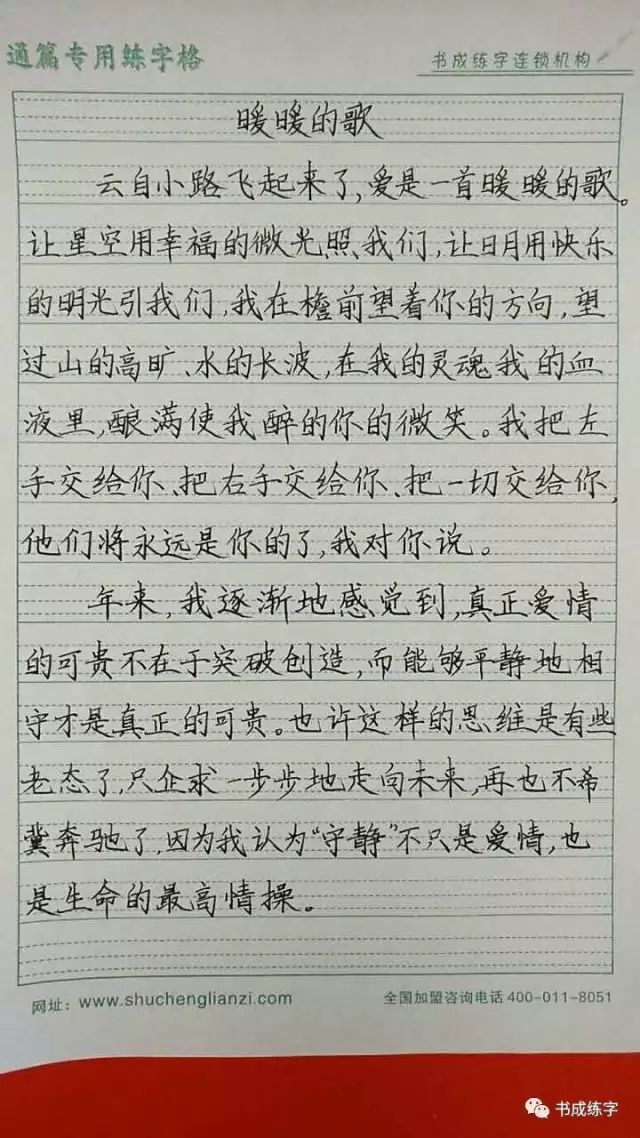 通篇专用练字格
书成练字连锁机构
暖暖的歌
云自小路飞起来了,爱是一首暖暖的歌。
让星空用幸福的微光照我们,让日月用快乐
的明光引我们,我在檐前望着你的方向,望
过山的高旷、水的长波,在我的灵魂我的血
液里,酿满使我醉的你的微笑。我把左
手交给你、把右手交给你、把一切交给你,
他们将永远是你的了,我对你说。
年来,我逐渐地感觉到,真正爱情
的可贵不在于突破创造,而能够平静地相
守才是真正的可贵。也许这样的思维是有些
老态了,只企求一步步地走向未来,再也不希
冀奔驰了,因为我认为“守静”不只是爱情,也
是生命的最高情操。
网址：www.shuchenglianzi.com
全国加盟咨询电话 400-011-8051
书成练字